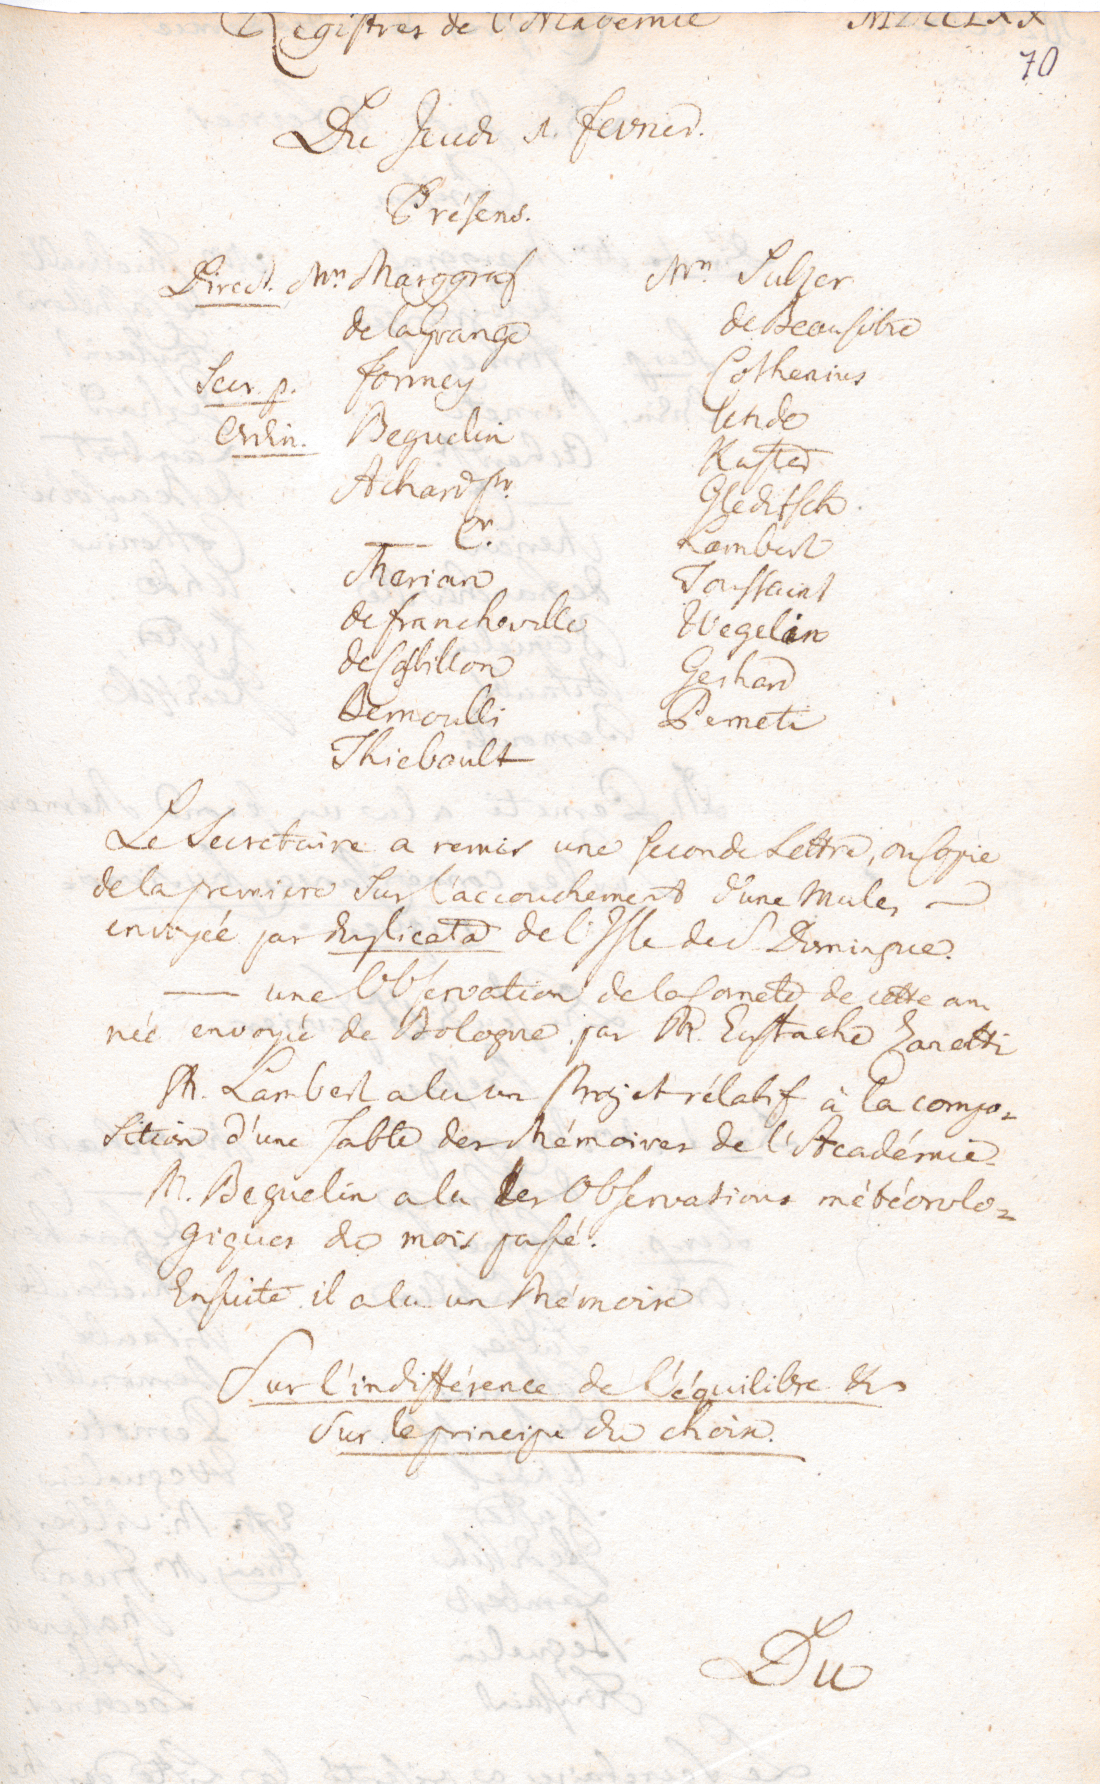 Registres de l'Academie MDCCLXX
70
Du Jeudi 1. fevrier.
Présens.
Direct. Mrs. Marggraf
de la Grange
Secr. p. formey
Ordin. Beguelin
Achard Sr.
— Cr.
Merian
de francheville
de Castillon
Bernoulli
Thiebault
Mrs. Sulzer
de Beausobre
Cothenius
Uhde
Kuster
Gleditsch.
Lambert
Toussaint
Wegelin
Gerhard
Perneti
Le Secretaire a remis une seconde Lettre, ou Copie
de la premiere sur l'accouchement d'une Mule, —
envoyée par duplicata de l'Isle de S. Domingue.
— une Observation de la Comete de cette an
née envoyée de Bologne par M. Eustache Zanotti
M. Lambert a lu un Projet rélatif à la compo=
sition d'une Table des Mémoires de l'Académie.
M. Beguelin a lu les Observations météorolo=
giques du mois passé.
Ensuite il a lu un Mémoire
Sur l'indifférence de l'équilibre &
Sur le principe du choix.
Du